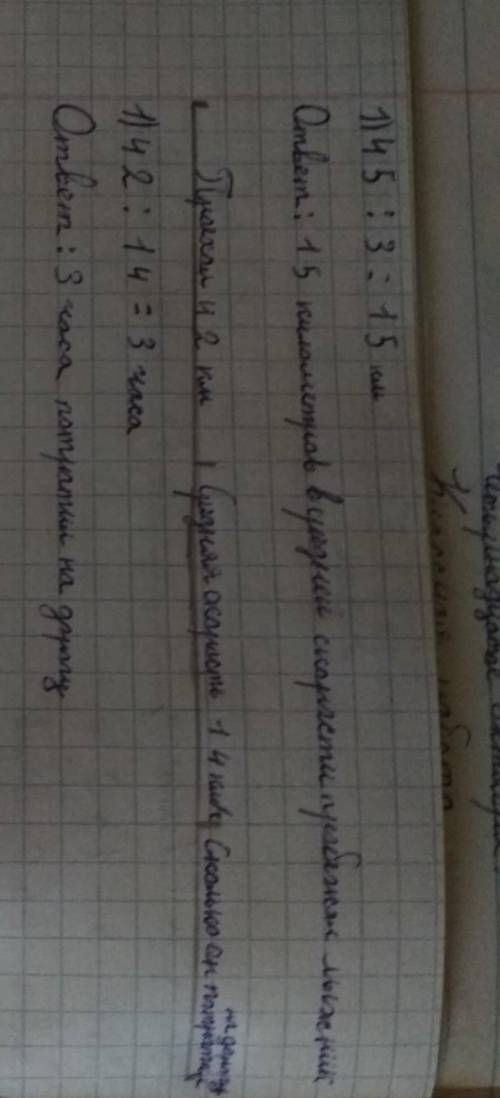 1) 45 : 3 = 15 км
Ответ: 15 километров в средней скорости пробежит лыжник
Проехал 42 км, Средняя скорость 14 км/ч Сколько он потратил на дорогу
1) 42 : 14 = 3 часа
Ответ: 3 часа потратил на дорогу